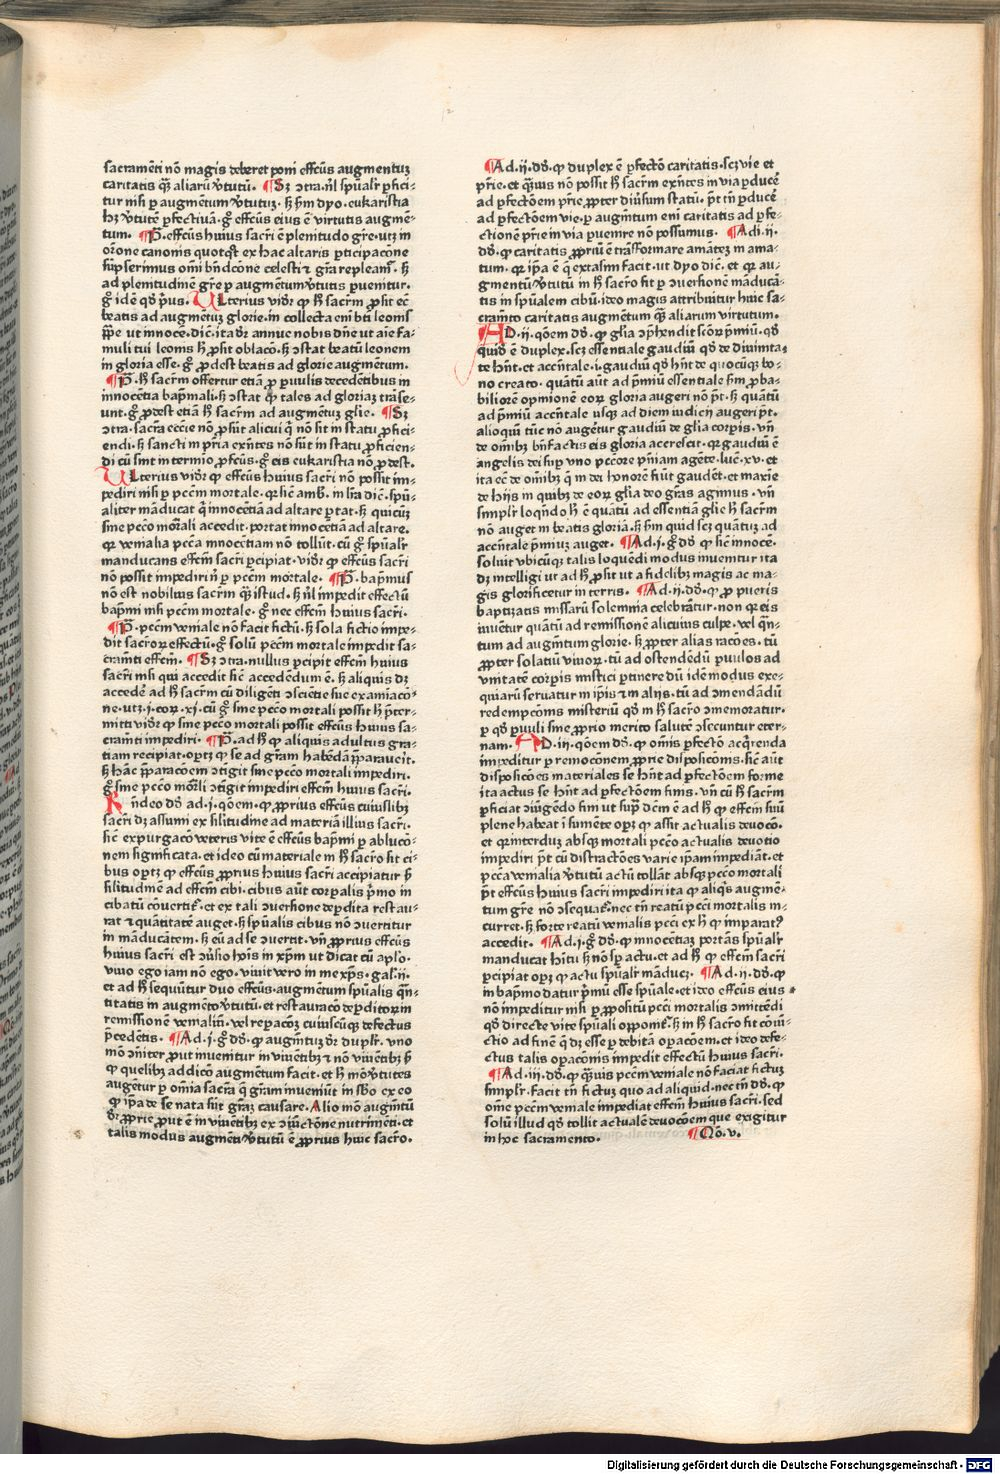 sacramēti nō magis deberet poni effcūs augmentuꝫ
caritatis qꝫ̄ aliarū v̄tutū. ¶ Sꝫ ɔtra. nl̄ spūalr̄ ꝓfici-
tur nisi ꝑ augmētum v̄tutuꝫ. ꝫ ẜm dyo. eukaristia
hꝫ v̄tutē ꝑfectiuā. gͦ effcūs eius ē virtutis augmē-
tum. ¶ P̄. effcūs huius sacr̄i ē plenitudo gr̄e. utꝫ in
or̄one canonis quotqͦt ex hac altaris ꝑticipacōne
sūpserimus omī bn̄dcōne celesti ⁊ gr̄a repleam̄. ꝫ
ad plenitudinē gr̄e ꝑ augmētum v̄tutis ꝑuenitur.
gͦ idē qd̄ pͥus. Ulterius vidr̄ ꝙ h̄ sacr̄m ꝓsit ec̄
beatis ad augmētuꝫ glorie. in collecta eni bt̄i leonis
pp̄e ut innocē. dic̄. ita dr̄ annue nobis dn̄e ut aīe fa-
muli tui leonis h̄ ꝓsit oblacō. ꝫ ɔstat beatū leonem
in gloria esse. gͦ ꝓdest beatis ad glorie augmētum.
¶ P̄. h̄ sacr̄m offertur etiā ꝓ ꝑuulis decedētibus in
innocētia bapm̄ali. ꝫ ɔstat qͥ tales ad gloriaꝫ trāse-
unt. gͦ ꝓdest etiā h̄ sacr̄m ad augmētuꝫ glīe. ¶ Sꝫ
ɔtra. sacr̄a eccīe nō ꝓsūt alicui qͥ nō sit in statu ꝓfici-
endi. ꝫ sancti in pr̄ia exn̄tes nō sūt in statu ꝓficien-
di cū sint in termino ꝓfcūs. gͦ eis eukaristia nō ꝓdest.
Ulterius vidr̄ ꝙ effcūs huius sacr̄i nō possit im-
pediri nisi ꝑ pcc̄m mortale. qr̄ sic̄ amb. in lr̄a dic̄. spū-
aliter māducat qͥ innocētiā ad altare ꝑtat. ꝫ quicūꝫ
sine pcc̄o mor̄ali accedit. portat innocētiā ad altare.
qr̄ venialia pcc̄a innocētiam nō tollūt. cū gͦ spūalr̄
manducans effcm̄ sacr̄i ꝑcipiat. vidr̄ ꝙ effcūs sacr̄i
nō possit impediri n̄ ꝑ pcc̄m mortale. ¶ P̄. bapm̄us
nō est nobilius sacr̄m qꝫ̄ istud. ꝫ nl̄ impedit effectū
bapm̄i nisi pcc̄m mortale. gͦ nec effcm̄ huius sacr̄i.
¶ P̄. pcc̄m veniale nō facit fictū. ꝫ sola fictio impe-
dit sacroꝝ effectū. gͦ solū pcc̄m mortale impedit sa-
cram̄ti effcm̄. ¶ Sꝫ ɔtra. nullus ꝑcipit effcm̄ huius
sacr̄i nisi qui accedit sic̄ accedēdum ē. ꝫ aliquis dꝫ
accedē ad h̄ sacr̄m cū diligēti ɔscīetie sue examīacō-
ne. utꝫ. j. cor. xi. cū gͦ sine pcc̄o mortali possit h̄ p̄ter-
mitti vidr̄ ꝙ sine pcc̄o mortali possit effcūs huius sa-
cram̄ti impediri. ¶ P̄. ad h̄ ꝙ aliquis adultus gra-
tiam recipiat. oportꝫ ꝙ se ad gram habēdā p̄parauerit.
ꝫ hac p̄paracōem ɔtīgit sine pcc̄o mortali impediri.
gͦ sine pcc̄o mor̄li ɔtigit impediri effcm̄ huius sacr̄i.
Rn̄deo dd̄ ad. j. qōem. ꝙ ꝓprius effcūs cuiuslibꝫ
sacr̄i dꝫ assumi ex sīlitudine ad materiā illius sacr̄i.
sic̄ expurgacō veteris vite ē effcūs bapm̄i ꝑ ablucō-
nem significata. et ideo cū materiale in h̄ sacro sit ci-
bus oportꝫ ꝙ effcūs ꝓprius huius sacr̄i accipiatur ẜ
sīlitudinē ad effcm̄ cibi. cibus aūt corꝑalis pͥmo in
cibatū cōuertit. et ex tali ɔuersione deꝑdita restau-
rat ⁊ quantitatē auget. ꝫ spūalis cibus nō ɔuertitur
in māducātem. ꝫ eū ad se ɔuertit. vn̄ ꝓprius effcūs
huius sacr̄i est ɔūsio hoīs in xp̄m ut dicat cū apl̄o.
viuo ego iam nō ego. viuit vero in me xp̄s. gal̄. ii.
et ad h̄ sequūtur duo effcūs. augmētum spūalis qn̄-
titatis in augmēto v̄tutū. et restauracō deꝑditorum in
remissionē venialiū. vel reꝑacōꝫ cuiuscūqꝫ defectus
p̄cedētis. ¶ Ad. j. gͦ dd̄. ꝙ augmētuꝫ dr̄ duplr̄. vno
mō ɔīter ꝓut inuenitur in viuētibꝫ ⁊ nō viuētibꝫ ẜ
ꝙ quelibꝫ addicō augmētum facit. et h̄ mō v̄tutes
augētur ꝑ omīa sacra qͣ gram inueniūt in sb̄o ex eo
ꝙ ipā de se nata sūt gr̄aꝫ causare. Alio mō augm̄tū
dr̄ ꝓprie ꝓut ē in viuētibꝫ ex ɔiūctōne nutrimēti. et
talis modus augmēti v̄tutū ē ꝓprius huic sacro.
¶ Ad. ij. dd̄. ꝙ duplex ē ꝑfectō caritatis. scꝫ vie et
pr̄ie. et qͣuis nō possit h̄ sacr̄m exn̄tes in via ꝑducē
ad ꝑfectōem pr̄ie. ꝓpter diūsum statū. pt̄ tn̄ ꝑducē
ad ꝑfectōem vie. ꝑ augm̄tum eni caritatis ad ꝑfe-
ctionē pr̄ie in via ꝑuenire nō possumus. ¶ Ad. ii. ij.
dd̄. ꝙ caritatis ꝓpriū ē trāsformare amātēꝫ in ama-
tum. qr̄ ipā ē qͣ extasim facit. ut dyo dic̄. et qr̄ au-
gmentū v̄tutū in h̄ sacro fit ꝑ ɔuersionē māducā-
tis in spūalem cibū. ideo magis attribuitur huic sa-
cram̄to caritatis augmētum qꝫ̄ aliarum virtutum.
AD. ij. qōem dd̄. ꝙ glīa ɔp̄hēdit scōꝝ pͥmiū. qd̄
quid̄ ē duplex. scꝫ essentiale gaudiū qd̄ de diuinita-
te hn̄t. et accn̄tale. i. gaudiū qd̄ hn̄t de quocūqꝫ bo-
no creato. quātū aūt ad pͥmiū essentiale ẜm ꝓba-
biliorē opinionē eoꝝ gloria augeri nō pt̄. ꝫ quātū
ad pͥmiū accn̄tale usqꝫ ad diem iudicij augeri pt̄.
alioqui tūc nō augētur gaudiū de glīa corꝑis. vn̄
de omībꝫ bn̄factis eis gloria accrescit. qr̄ gaudiū ē
angelis dei suꝑ uno pcc̄ore pn̄iam agēte. luc̄. xv. et
ita ec̄ de omībꝫ qͣ in dei honorē fiūt gaudēt. et maxīe
de hijs in quibꝫ de eoꝝ glīa deo gr̄as agimus. vn̄
simplr̄ loqn̄do h̄ ē quātū ad essentiā glīe h̄ sacr̄m
nō auget in beatis gloriā. ꝫ ẜm quid scꝫ quātuꝫ ad
accn̄tale pͥmiuꝫ auget. ¶ Ad. j. gͦ dd̄ ꝙ sic̄ innocē.
soluit vbicūqꝫ talis loquēdi modus inuenitur ita
dꝫ intelligi ut ad h̄ ꝓsit ut a fidelibꝫ magis ac ma-
gis glorificetur in terris. ¶ Ad. ij. dd̄. ꝙ ꝓ pueris
baptizatis missarū solemnia celebrātur. non qr̄ eis
iuuētur quātū ad remissionē alicuius culpe. vel qn̄-
tum ad augm̄tum glorie. ꝫ ꝓpter alias racōes. tū
ꝓpter solatiū viuoꝝ. tū ad ostendēdū ꝑuulos ad
vnitatē corꝑis mistici ꝑtinere dū idē modus exe-
quiarū seruatur in ip̄is ⁊ in alijs. tū ad ɔmendādū
redempcōnis misteriū qd̄ in h̄ sacro ɔmemoratur.
ꝑ qd̄ ꝑuuli sine ꝓprio merito salutē ɔsecuntur eter-
nam. AD. iij. qōem dd̄. ꝙ omīs ꝑfectō acqͥrenda
impeditur ꝑ remocōnem ꝓprie disposicōnis. sic̄ aūt
disposicōes materiales se hn̄t ad ꝑfectōem forme
ita actus se hn̄t ad ꝑfectōem finis. vn̄ cū h̄ sacr̄m
ꝑficiat ɔiūgēdo fini ut supͣ dc̄m ē ad h̄ ꝙ effcm̄ suū
plene habeat ī sumēte oportꝫ ꝙ assit actualis deuocō.
et qr̄ interduꝫ absqꝫ mortali pcc̄o actualis deuotio
impediri pt̄ cū distractōnes varie ipam impediāt. et
pcc̄a venialia v̄tutū actū tollāt absqꝫ pcc̄o mortali
pt̄ effcūs huius sacr̄i impediri ita ꝙ aliqͥs augmē-
tum gr̄e nō ɔsequat̄. nec tn̄ reatū pcc̄i mortalis in-
curret. ꝫ forte reatū venialis pcc̄i ex h̄ ꝙ imparatꝰ
accedit. ¶ Ad. j. gͦ dd̄. ꝙ innocētiaꝫ portās spūalr̄
manducat hītu ꝫ nō sꝑ actu. et ad h̄ ꝙ effcm̄ sacr̄i
ꝑcipiat oportꝫ ꝙ actu spūalr̄ māducꝫ. ¶ Ad. ij. dd̄. ꝙ
in bapm̄o datur pͥmū esse spūale. et ideo effcūs eius
nō impeditur nisi ꝑ ꝓpositū pcc̄i mortalis ɔmittēdi
qd̄ directe vite spūali opponit̄. ꝫ in h̄ sacro fit coniū-
ctio ad finē qͣ dꝫ esse ꝑ debitā oꝑacōem. et ideo defe-
ctus talis oꝑacōnis impedit effectū huius sacr̄i.
¶ Ad. iij. dd̄. ꝙ qͣuis pcc̄m veniale nō faciat fictuꝫ
simplr̄. facit tn̄ fictuꝫ quo ad aliquid. nec tn̄ dd̄. ꝙ
om̄e pcc̄m veniale impediat effcm̄ huius sacr̄i. sed
solū illud qd̄ tollit actualē deuocōem que exigitur
in hoc sacramento. ¶ Qō. v.
Digitalisierung gefördert durch die Deutsche Forschungsgemeinschaft - DFG